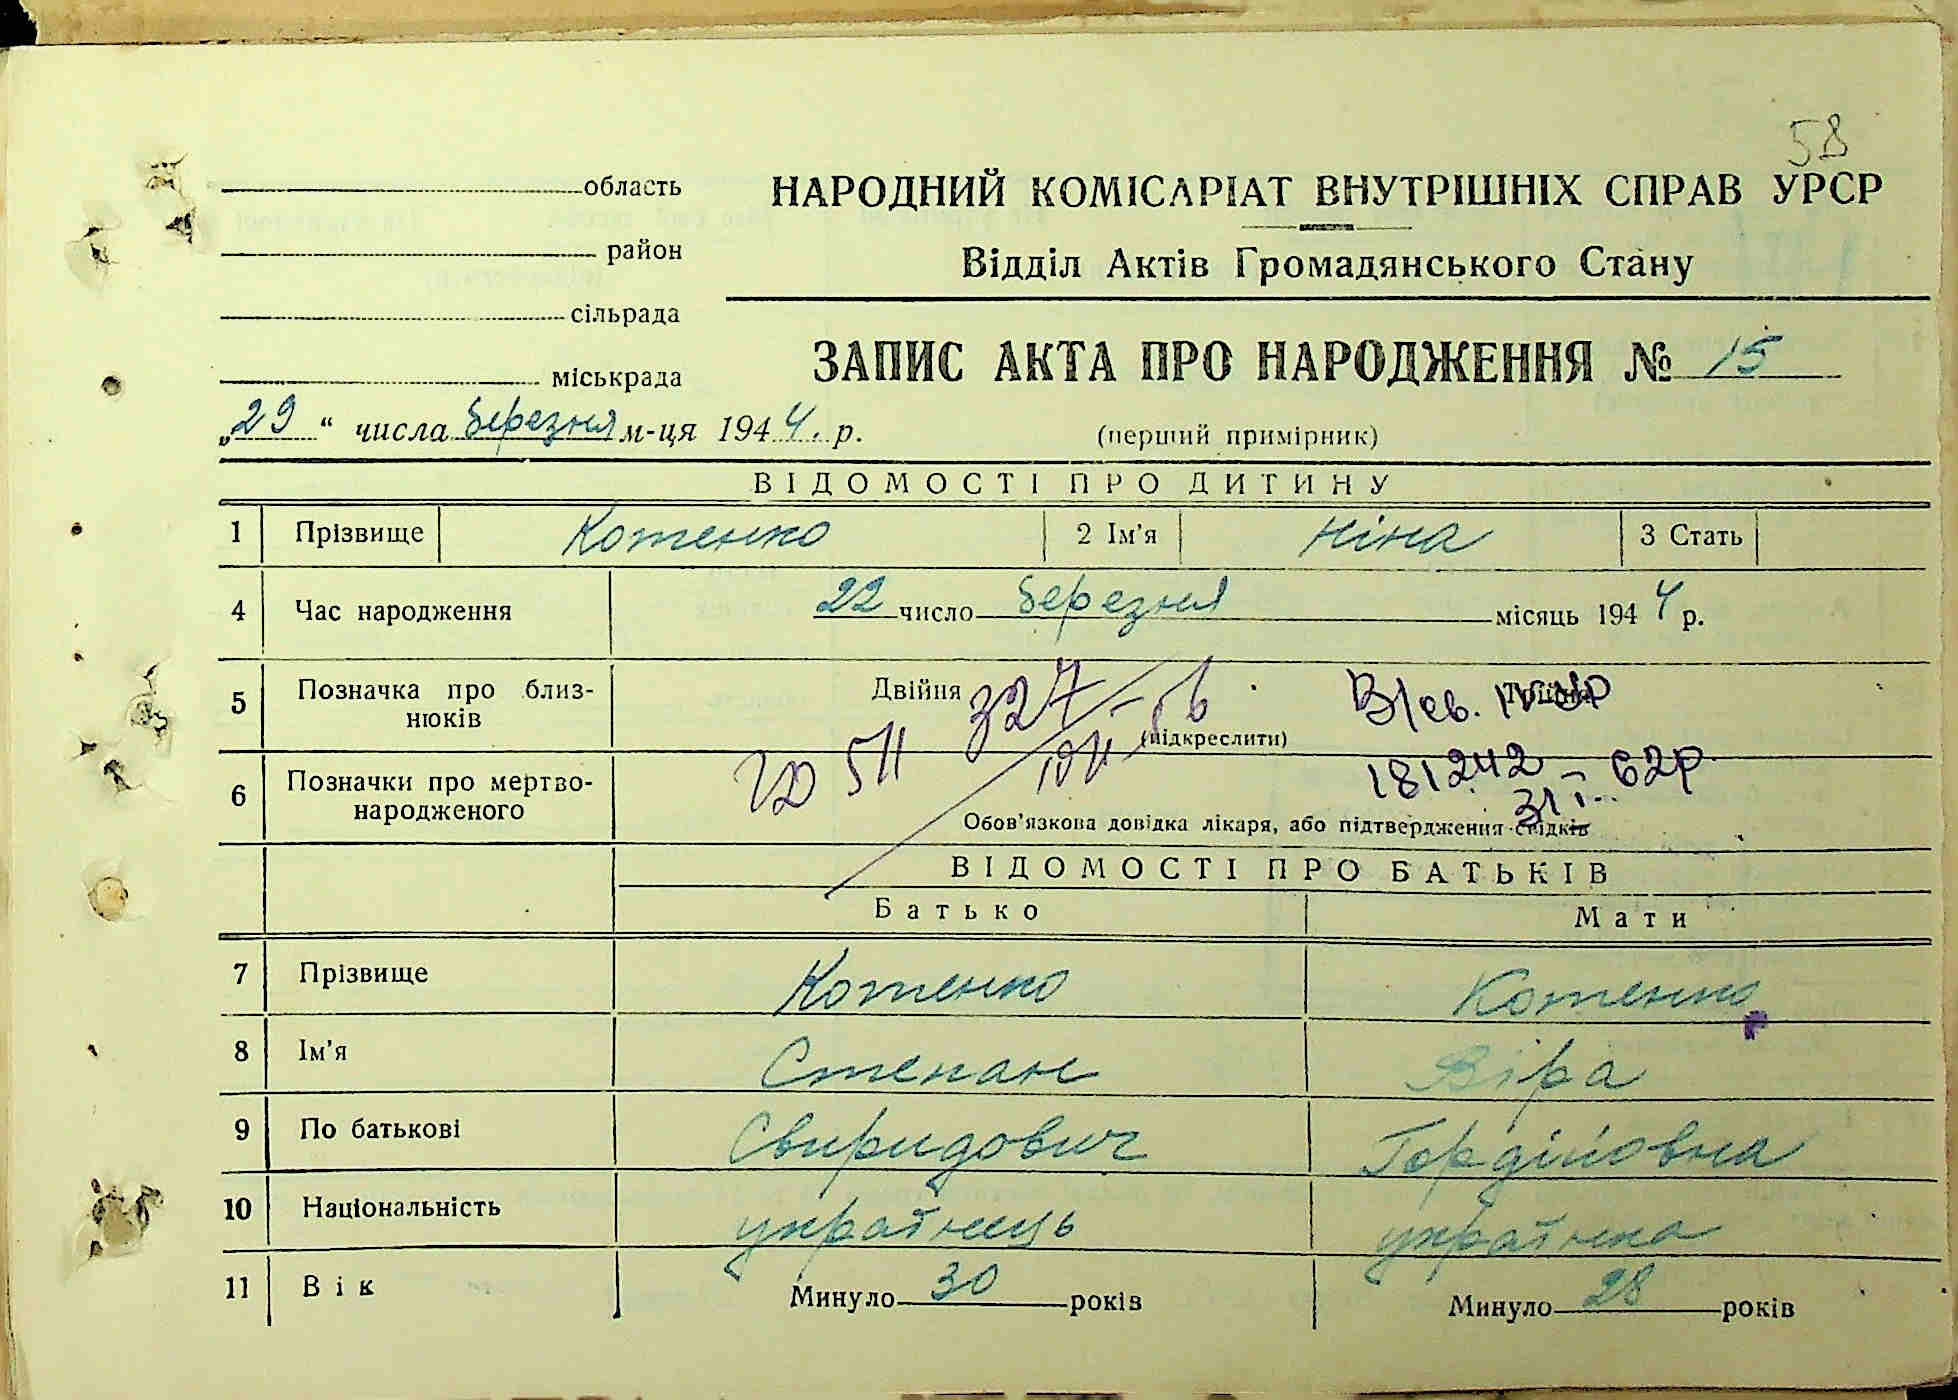 58
область
НАРОДНИЙ КОМІСАРІАТ ВНУТРІШНІХ СПРАВ УРСР
район
Відділ Актів Громадянського Стану
сільрада
міськрада
ЗАПИС АКТА ПРО НАРОДЖЕННЯ № 15
„29“ числа березня м-ця 1944. р.
(перший примірник)
ВІДОМОСТІ ПРО ДИТИНУ
1 Прізвище Котенко 2 Ім'я Ніна 3 Стать
4 Час народження 22 число березня місяць 1944 р.
5 Позначка про близнюків Двійня Трійня
(підкреслити)
327
511
181242
31 І - 62р
6 Позначки про мертвонародженого
Обов'язкова довідка лікаря, або підтвердження свідків
ВІДОМОСТІ ПРО БАТЬКІВ
Батько Мати
7 Прізвище Котенко Котенко
8 Ім'я Степан Віра
9 По батькові Свиридович Гордіїовна
10 Національність українець українка
11 Вік Минуло 30 років Минуло 28 років